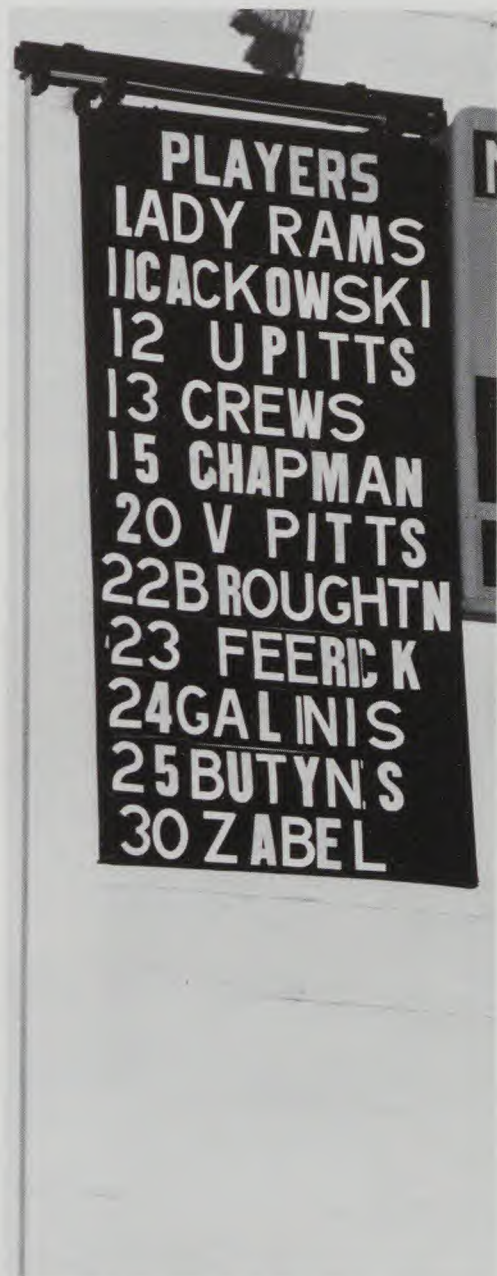 PLAYERS
LADY RAMS
11CACKOWSKI
12 U PITTS
13 CREWS
15 CHAPMAN
20 V PITTS
22BROUGHTN
23 FEERICK
24GALINIS
25BUTYN'S
30 ZABEL